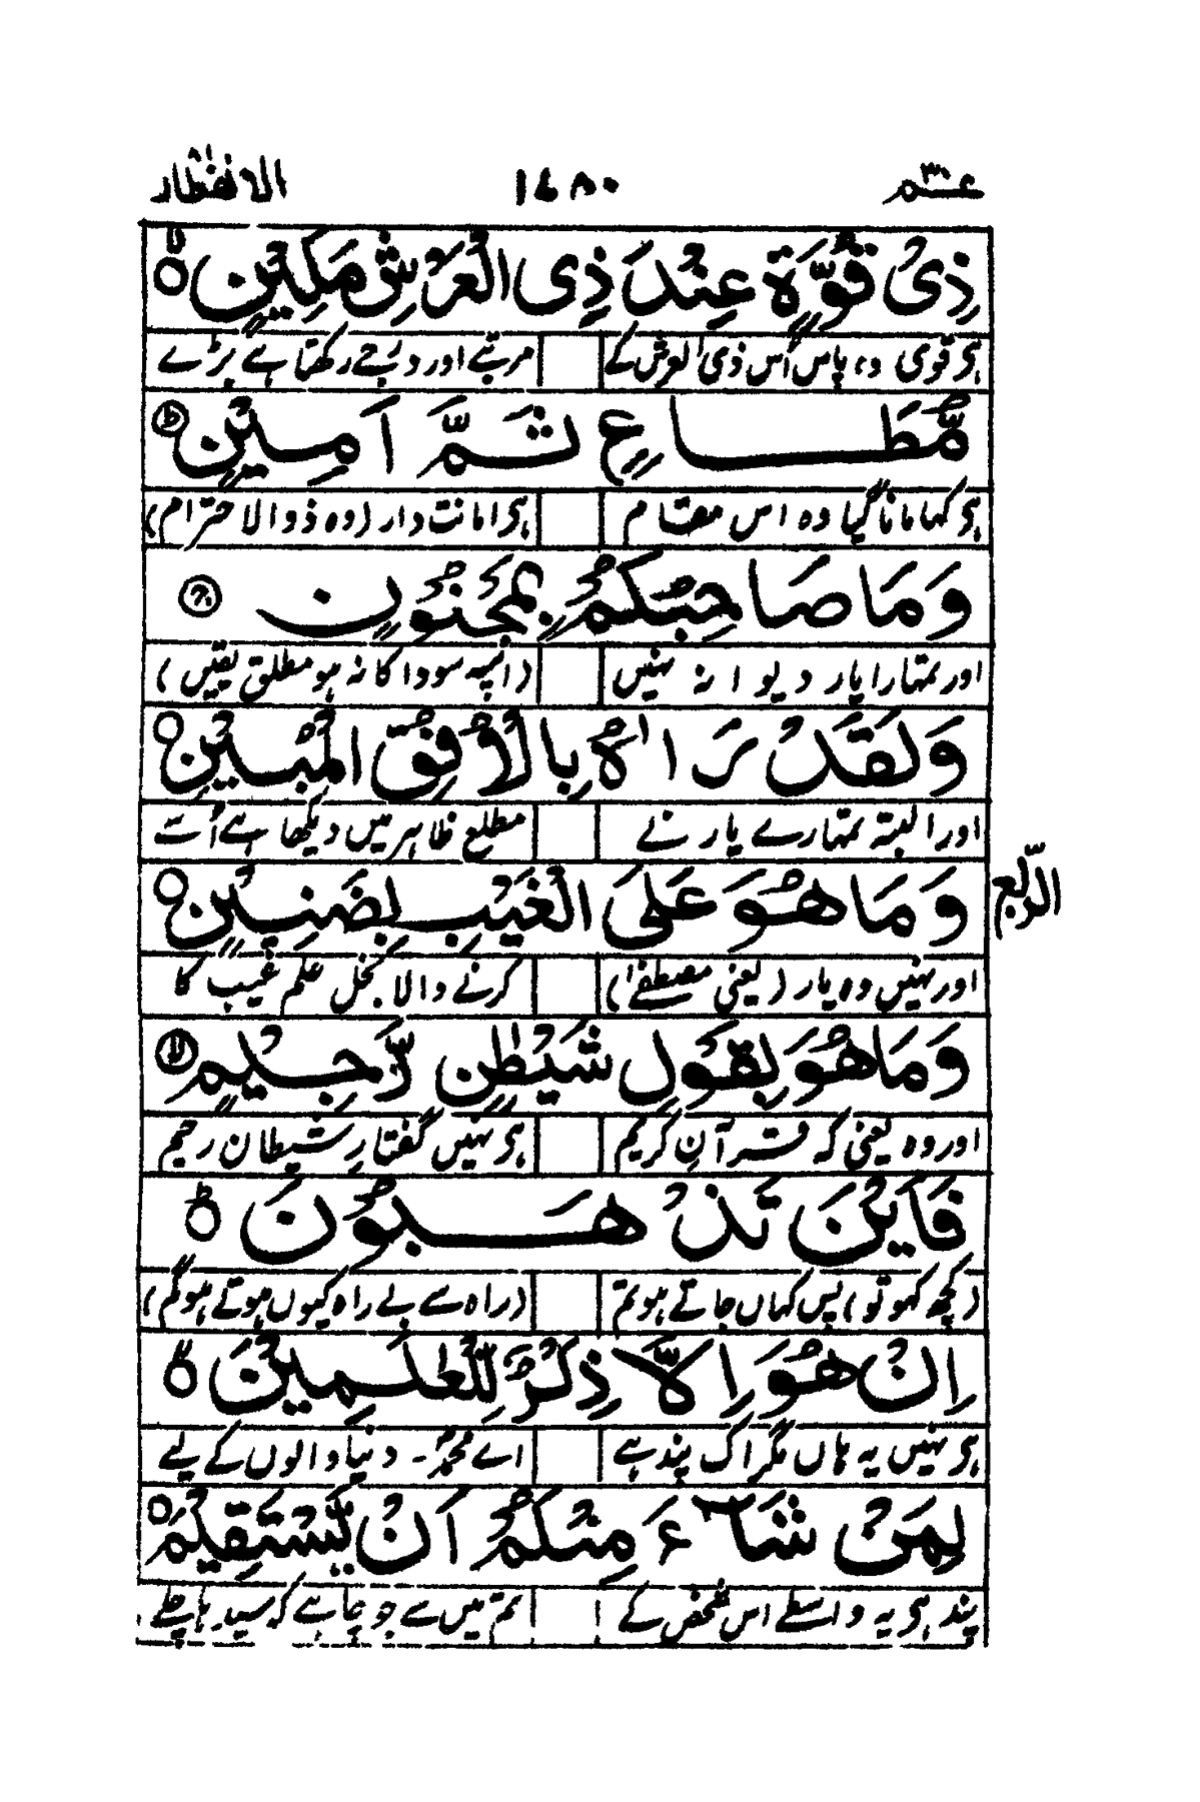 عم ٣٠ ١٤٨٠ الانفطار ٨٢
ذِىْ قُوَّةٍ عِنْدَ ذِى الْعَرْشِ مَكِيْنٍ
ہی قوی وہ، پاس اُس ذی العرش کے مرتبے اور درجے رکھتا ہے بڑے
مُّطَاعٍ ثَمَّ اَمِيْنٍ
ہی کہا مانا گیا وہ اس مقام ہی امانت دار (وہ ذوالاحترام)
وَمَا صَاحِبُكُمْ بِمَجْنُوْنٍ
اور تمہارا یار دیوانہ نہیں (اسپہ سودا کا نہ ہو مطلق یقیں)
وَلَقَدْ رَاٰهُ بِالْاُفُقِ الْمُبِيْنِ
اور البتہ تمہارے یار نے مطلع ظاہر میں دیکھا ہے اُسے
وَمَا هُوَ عَلَى الْغَيْبِ بِضَنِيْنٍ
الربع
اور نہیں وہ یار (یعنی مصطفےٰ) کرنے والا بخل علم غیب کا
وَمَا هُوَ بِقَوْلِ شَيْطٰنٍ رَّجِيْمٍ
اور وہ یعنی کہ قرآنِ کریم ہی نہیں گفتارِ شیطان رجیم
فَاَيْنَ تَذْهَبُوْنَ
(کچھ کہو تو) پس کہاں جاتے ہو تم (راہ سے بے راہ کیوں ہوتے ہو گم)
اِنْ هُوَ اِلَّا ذِكْرٌ لِّلْعٰلَمِيْنَ
ہی نہیں یہ ہاں مگر اک پند ہے اے محمدؐ - دنیا والوں کے لیے
لِمَنْ شَآءَ مِنْكُمْ اَنْ يَّسْتَقِيْمَ
پند ہی یہ واسطے اس شخص کے تم میں سے جو چاہے کہ سیدہا چلے